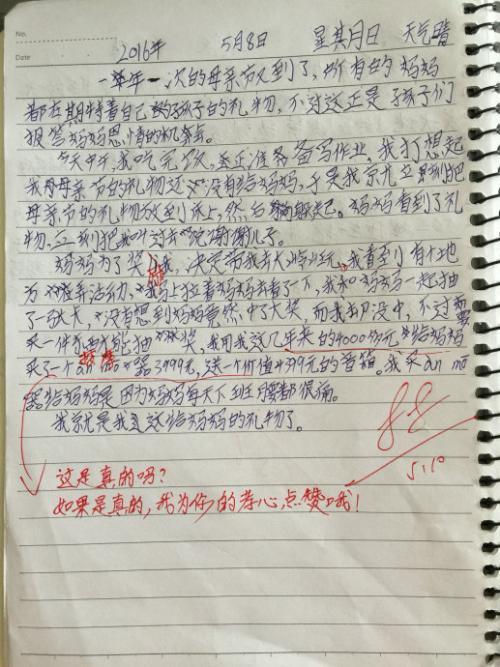 No.
Date
2016年 5月8日 星其月日 天气晴
一年一次的母亲节又到了,所有的妈妈
都在期待着自己孩子的礼物,不过这正是孩子们
报答妈妈恩情的机会。
今天中午,我吃完饭,正准备写作业,我才想起
我母亲节的礼物还没有给妈妈,于是我就立刻把
母亲节的礼物放到床上,然后躲起。妈妈看到了礼
物,立刻把我叫过去说谢谢儿子。
妈妈为了奖我,决定带我去大玩。我看到有个地
方在弄活动,我马上拉着妈妈去看了下,我和妈妈一起抽
了一张大,没有想到妈妈竟然中了大奖,而我却没中,不过要
买一件东西才能抽奖,我用我这几年来的4000多元给妈妈
买了一个按摩器3999元,送一个价值4399元的音箱。我买an mo
器给妈妈是因为妈妈每天下班腰都很痛。
我就是我送给妈妈的礼物了。
88
5.10
这是真的吗?
如果是真的,我为你的孝心点赞哦!